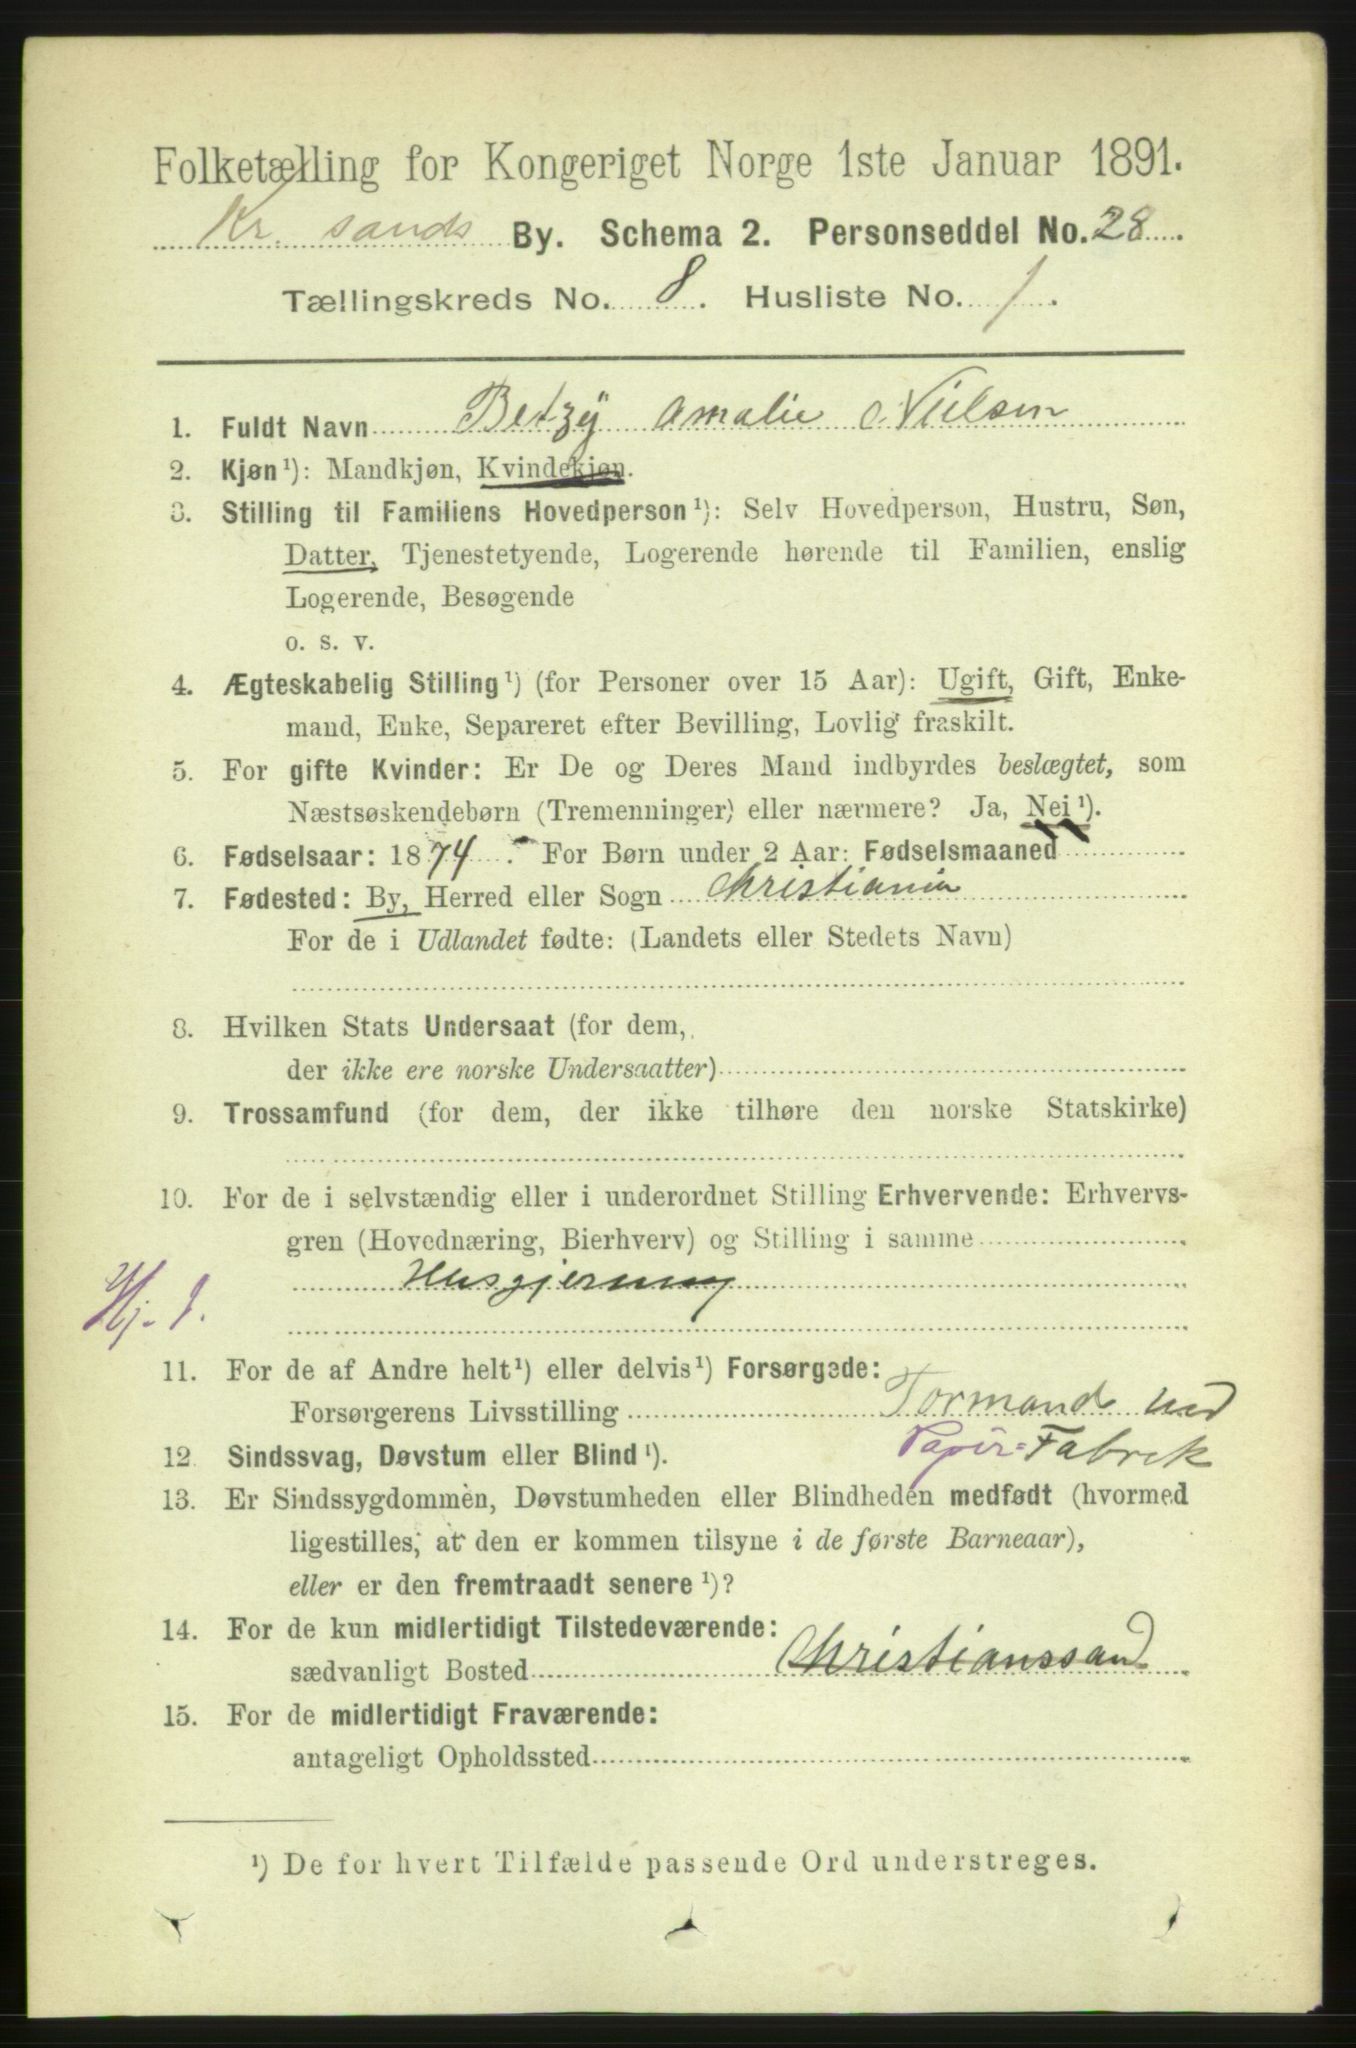 Folketælling for Kongeriget Norge 1ste Januar 1891.
Kr. sands By. Schema 2. Personseddel No. 28.
Tællingskreds No. 8. Husliste No. 1.
1. Fuldt Navn Betzy Amalie Nielsen
2. Kjøn ¹): Mandkjøn, Kvindekjøn.
3. Stilling til Familiens Hovedperson ¹): Selv Hovedperson, Hustru, Søn,
Datter, Tjenestetyende, Logerende hørende til Familien, enslig
Logerende, Besøgende
o. s. v.
4. Ægteskabelig Stilling ¹) (for Personer over 15 Aar): Ugift, Gift, Enke-
mand, Enke, Separeret efter Bevilling, Lovlig fraskilt.
5. For gifte Kvinder: Er De og Deres Mand indbyrdes beslægtet, som
Næstsøskendebørn (Tremenninger) eller nærmere? Ja, Nei ¹).
6. Fødselsaar: 1874. For Børn under 2 Aar: Fødselsmaaned
7. Fødested: By, Herred eller Sogn Christiania
For de i Udlandet fødte: (Landets eller Stedets Navn)
8. Hvilken Stats Undersaat (for dem,
der ikke ere norske Undersaatter)
9. Trossamfund (for dem, der ikke tilhøre den norske Statskirke)
10. For de i selvstændig eller i underordnet Stilling Erhvervende: Erhvervs-
gren (Hovednæring, Bierhverv) og Stilling i samme
Husgjerning
Hj. 1.
11. For de af Andre helt ¹) eller delvis ¹) Forsørgede:
Forsørgerens Livsstilling Formand ved
Papir=Fabrik
12. Sindssvag, Døvstum eller Blind ¹).
13. Er Sindssygdommen, Døvstumheden eller Blindheden medfødt (hvormed
ligestilles, at den er kommen tilsyne i de første Barneaar),
eller er den fremtraadt senere ¹)?
14. For de kun midlertidigt Tilstedeværende:
sædvanligt Bosted Christianssand
15. For de midlertidigt Fraværende:
antageligt Opholdssted
¹) De for hvert Tilfælde passende Ord understreges.